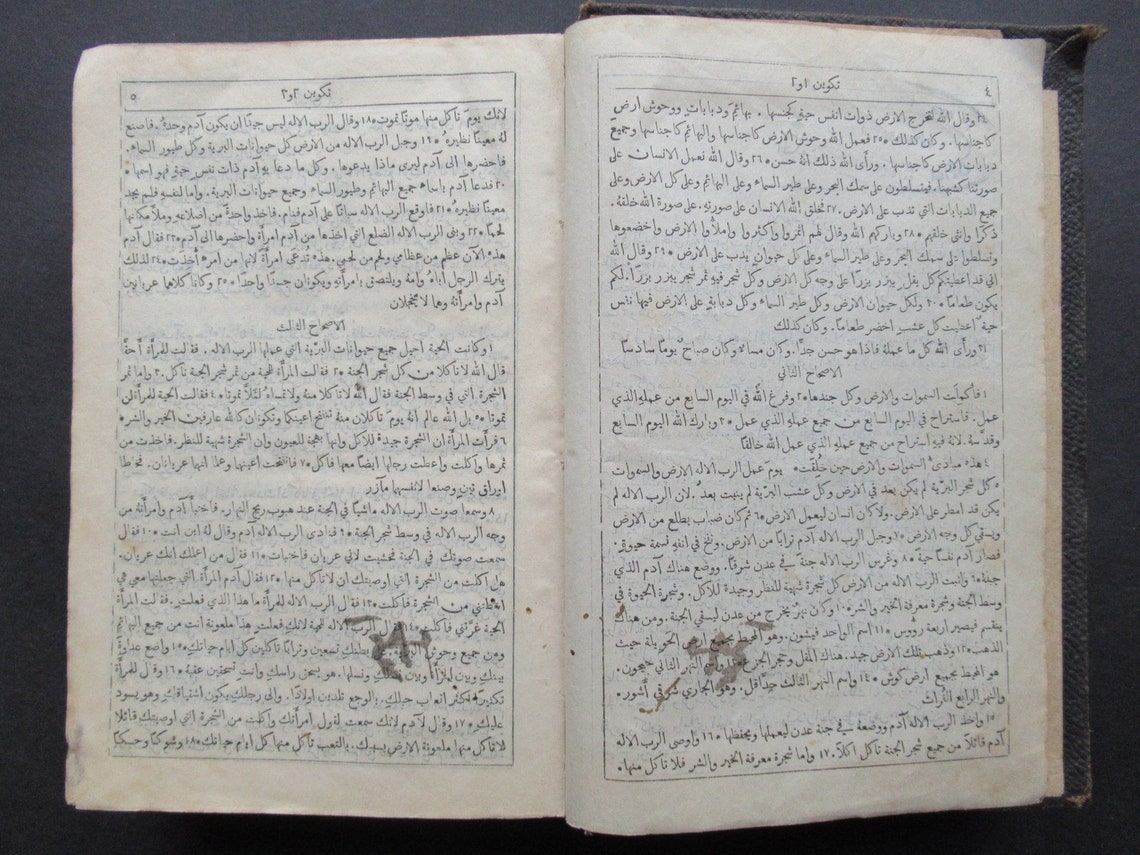 ٤
تكوين ١ و٢
٢٤ وقال الله لتخرج الارض ذوات انفس حية كجنسها. بهائم ودبابات ووحوش ارض
كاجناسها. وكان كذلك ٢٥ فعمل الله وحوش الارض كاجناسها والبهائم كاجناسها وجميع
دبابات الارض كاجناسها. ورأى الله ذلك انه حسن ٢٦ وقال الله نعمل الانسان على
صورتنا كشبهنا. فيتسلطون على سمك البحر وعلى طير السماء وعلى البهائم وعلى كل الارض وعلى
جميع الدبابات التي تدب على الارض. ٢٧ فخلق الله الانسان على صورته. على صورة الله خلقه.
ذكرًا وانثى خلقهم ٢٨ وباركهم الله وقال لهم اثمروا واكثروا واملأوا الارض واخضعوها
وتسلطوا على سمك البحر وعلى طير السماء وعلى كل حيوان يدب على الارض ٢٩ وقال الله
اني قد اعطيتكم كل بقل يبزر بزرًا على وجه كل الارض وكل شجر فيه ثمر شجر يبزر بزرًا. لكم
يكون طعامًا ٣٠ ولكل حيوان الارض وكل طير السماء وكل دبابة على الارض فيها نفس
حية اعطيت كل عشب اخضر طعامًا. وكان كذلك
٣١ ورأى الله كل ما عمله فاذا هو حسن جدًا. وكان مساء وكان صباح يومًا سادسًا
الاصحاح الثاني
١ فاكملت السموات والارض وكل جندها ٢ وفرغ الله في اليوم السابع من عمله الذي
عمل. فاستراح في اليوم السابع من جميع عمله الذي عمل ٣ وبارك الله اليوم السابع
وقدسه. لانه فيه استراح من جميع عمله الذي عمل الله خالقًا
٤ هذه مبادئ السموات والارض حين خُلقت. يوم عمل الرب الاله الارض والسموات
٥ كل شجر البرية لم يكن بعد في الارض وكل عشب البرية لم ينبت بعد. لان الرب الاله لم
يكن قد امطر على الارض. ولا كان انسان ليعمل الارض ٦ ثم كان ضباب يطلع من الارض
ويسقي كل وجه الارض ٧ وجبل الرب الاله آدم ترابًا من الارض. ونفخ في انفه نسمة حيوة.
فصار آدم نفسًا حية ٨ وغرس الرب الاله جنة في عدن شرقًا. ووضع هناك آدم الذي
جبله ٩ وانبت الرب الاله من الارض كل شجرة شهية للنظر وجيدة للاكل. وشجرة الحيوة في
وسط الجنة وشجرة معرفة الخير والشر ١٠ وكان نهر يخرج من عدن ليسقي الجنة. ومن هناك
ينقسم فيصير اربعة رؤوس ١١ اسم الواحد فيشون. وهو المحيط بجميع ارض الحويلة حيث
الذهب ١٢ وذهب تلك الارض جيد. هناك المقل وحجر الجزع ١٣ واسم النهر الثاني جيحون.
هو المحيط بجميع ارض كوش ١٤ واسم النهر الثالث حدّاقل. وهو الجاري شرقي أشور.
والنهر الرابع الفرات
١٥ واخذ الرب الاله آدم ووضعه في جنة عدن ليعملها ويحفظها ١٦ واوصى الرب الاله
آدم قائلًا من جميع شجر الجنة تاكل اكلًا. ١٧ واما شجرة معرفة الخير والشر فلا تاكل منها.
تكوين ٢ و٣
٥
لانك يوم تاكل منها موتًا تموت ١٨ وقال الرب الاله ليس جيدًا ان يكون آدم وحده. فاصنع
له معينًا نظيره ١٩ وجبل الرب الاله من الارض كل حيوانات البرية وكل طيور السماء.
فاحضرها الى آدم ليرى ماذا يدعوها. وكل ما دعا به آدم ذات نفس حية فهو اسمها.
٢٠ فدعا آدم باسماء جميع البهائم وطيور السماء وجميع حيوانات البرية. واما لنفسه فلم يجد
معينًا نظيره ٢١ فاوقع الرب الاله سباتًا على آدم فنام. فاخذ واحدة من اضلاعه وملأ مكانها
لحمًا ٢٢ وبنى الرب الاله الضلع التي اخذها من آدم امرأة واحضرها الى آدم ٢٣ فقال آدم
هذه الآن عظم من عظامي ولحم من لحمي. هذه تدعى امرأة لانها من امرء أخذت ٢٤ لذلك
يترك الرجل اباه وامه ويلتصق بامرأته ويكونان جسدًا واحدًا ٢٥ وكانا كلاهما عريانين
آدم وامرأته وهما لا يخجلان
الاصحاح الثالث
١ وكانت الحية احيل جميع حيوانات البرية التي عملها الرب الاله. فقالت للمرأة أحقًا
قال الله لا تاكلا من كل شجر الجنة ٢ فقالت المرأة للحية من ثمر شجر الجنة ناكل. ٣ واما ثمر
الشجرة التي في وسط الجنة فقال الله لا تاكلا منه ولا تمساه لئلا تموتا ٤ فقالت الحية للمرأة لن
تموتا ٥ بل الله عالم انه يوم تاكلان منه تنفتح اعينكما وتكونان كالله عارفين الخير والشر
٦ فرأت المرأة ان الشجرة جيدة للاكل وانها بهجة للعيون وان الشجرة شهية للنظر. فاخذت من
ثمرها واكلت واعطت رجلها ايضًا معها فاكل ٧ فانفتحت اعينهما وعلما انهما عريانان. فخاطا
اوراق تين وصنعا لانفسهما مآزر
٨ وسمعا صوت الرب الاله ماشيًا في الجنة عند هبوب ريح النهار. فاختبأ آدم وامرأته من
وجه الرب الاله في وسط شجر الجنة ٩ فنادى الرب الاله آدم وقال له اين انت ١٠ فقال
سمعت صوتك في الجنة فخشيت لاني عريان فاختبات ١١ فقال من اعلمك انك عريان.
هل اكلت من الشجرة التي اوصيتك ان لا تاكل منها ١٢ فقال آدم المرأة التي جعلتها معي هي
اعطتني من الشجرة فاكلت ١٣ فقال الرب الاله للمرأة ما هذا الذي فعلت. فقالت المرأة
الحية غرّتني فاكلت ١٤ فقال الرب الاله للحية لانك فعلت هذا ملعونة انت من جميع البهائم
ومن جميع وحوش البرية. بطنك تسعين وترابًا تاكلين كل ايام حياتك ١٥ واضع عداوة
بينك وبين المرأة وبين نسلك ونسلها. هو يسحق راسك وانت تسحقين عقبه ١٦ وقال للمرأة
تكثيرًا اكثر اتعاب حبلك. بالوجع تلدين اولادًا. والى رجلك يكون اشتياقك وهو يسود
عليك ١٧ وقال لآدم لانك سمعت لقول امرأتك واكلت من الشجرة التي اوصيتك قائلًا
لا تاكل منها ملعونة الارض بسببك. بالتعب تاكل منها كل ايام حياتك ١٨ وشوكًا وحسكًا